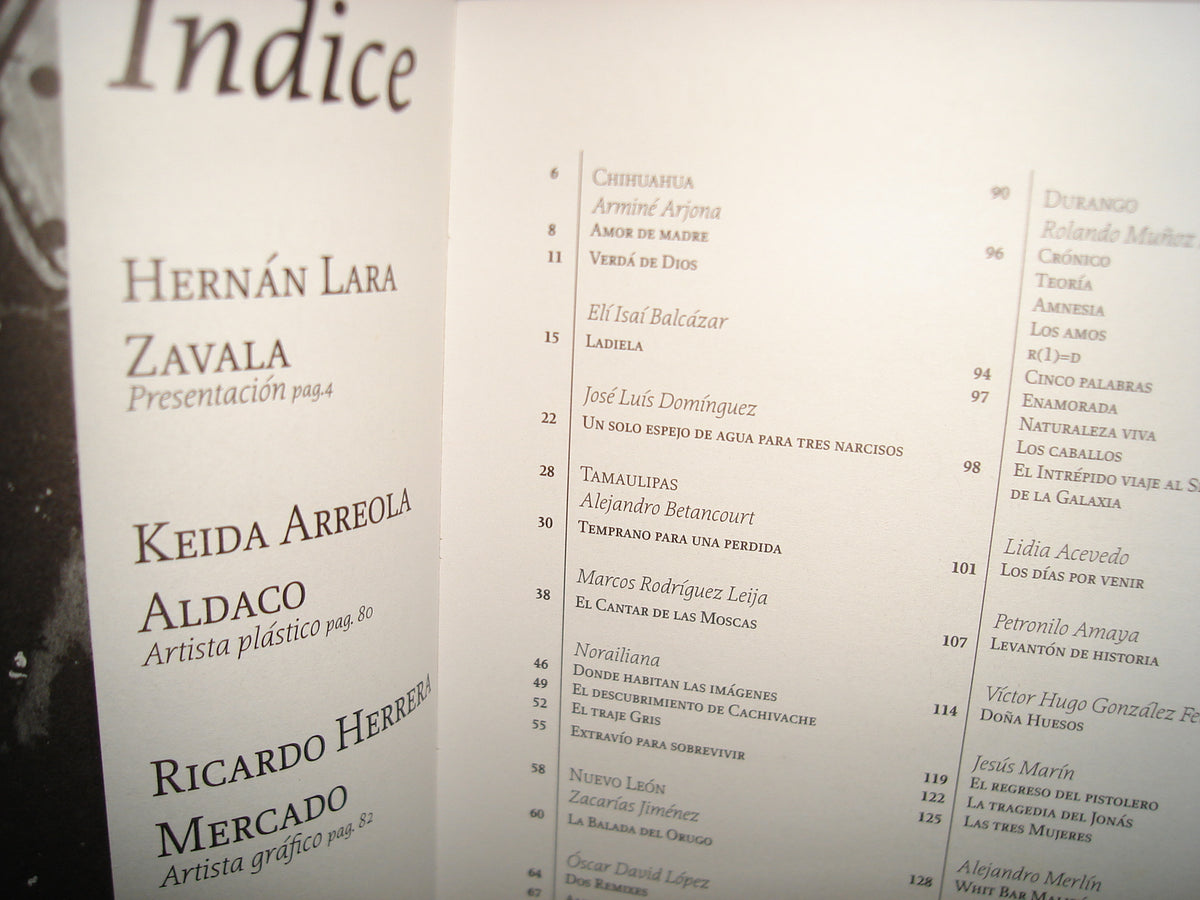 Indice
HERNÁN LARA
ZAVALA
Presentación pag.4
KEIDA ARREOLA
ALDACO
Artista plástico pag. 80
RICARDO HERRERA
MERCADO
Artista gráfico pag. 82
6 CHIHUAHUA
Arminé Arjona
8 AMOR DE MADRE
11 VERDÁ DE DIOS
Elí Isaí Balcázar
15 LADIELA
José Luís Domínguez
22 UN SOLO ESPEJO DE AGUA PARA TRES NARCISOS
28 TAMAULIPAS
Alejandro Betancourt
30 TEMPRANO PARA UNA PERDIDA
Marcos Rodríguez Leija
38 EL CANTAR DE LAS MOSCAS
Norailiana
46 DONDE HABITAN LAS IMÁGENES
49 EL DESCUBRIMIENTO DE CACHIVACHE
52 EL TRAJE GRIS
55 EXTRAVÍO PARA SOBREVIVIR
58 NUEVO LEÓN
Zacarías Jiménez
60 LA BALADA DEL ORUGO
Óscar David López
64 DOS REMIXES
67
90 DURANGO
Rolando Muñoz
96 CRÓNICO
TEORÍA
AMNESIA
LOS AMOS
R(1)=D
94 CINCO PALABRAS
97 ENAMORADA
NATURALEZA VIVA
LOS CABALLOS
98 EL INTRÉPIDO VIAJE AL
DE LA GALAXIA
Lidia Acevedo
101 LOS DÍAS POR VENIR
Petronilo Amaya
107 LEVANTÓN DE HISTORIA
Víctor Hugo González
114 DOÑA HUESOS
Jesús Marín
119 EL REGRESO DEL PISTOLERO
122 LA TRAGEDIA DEL JONÁS
125 LAS TRES MUJERES
Alejandro Merlín
128 WHIT BAR